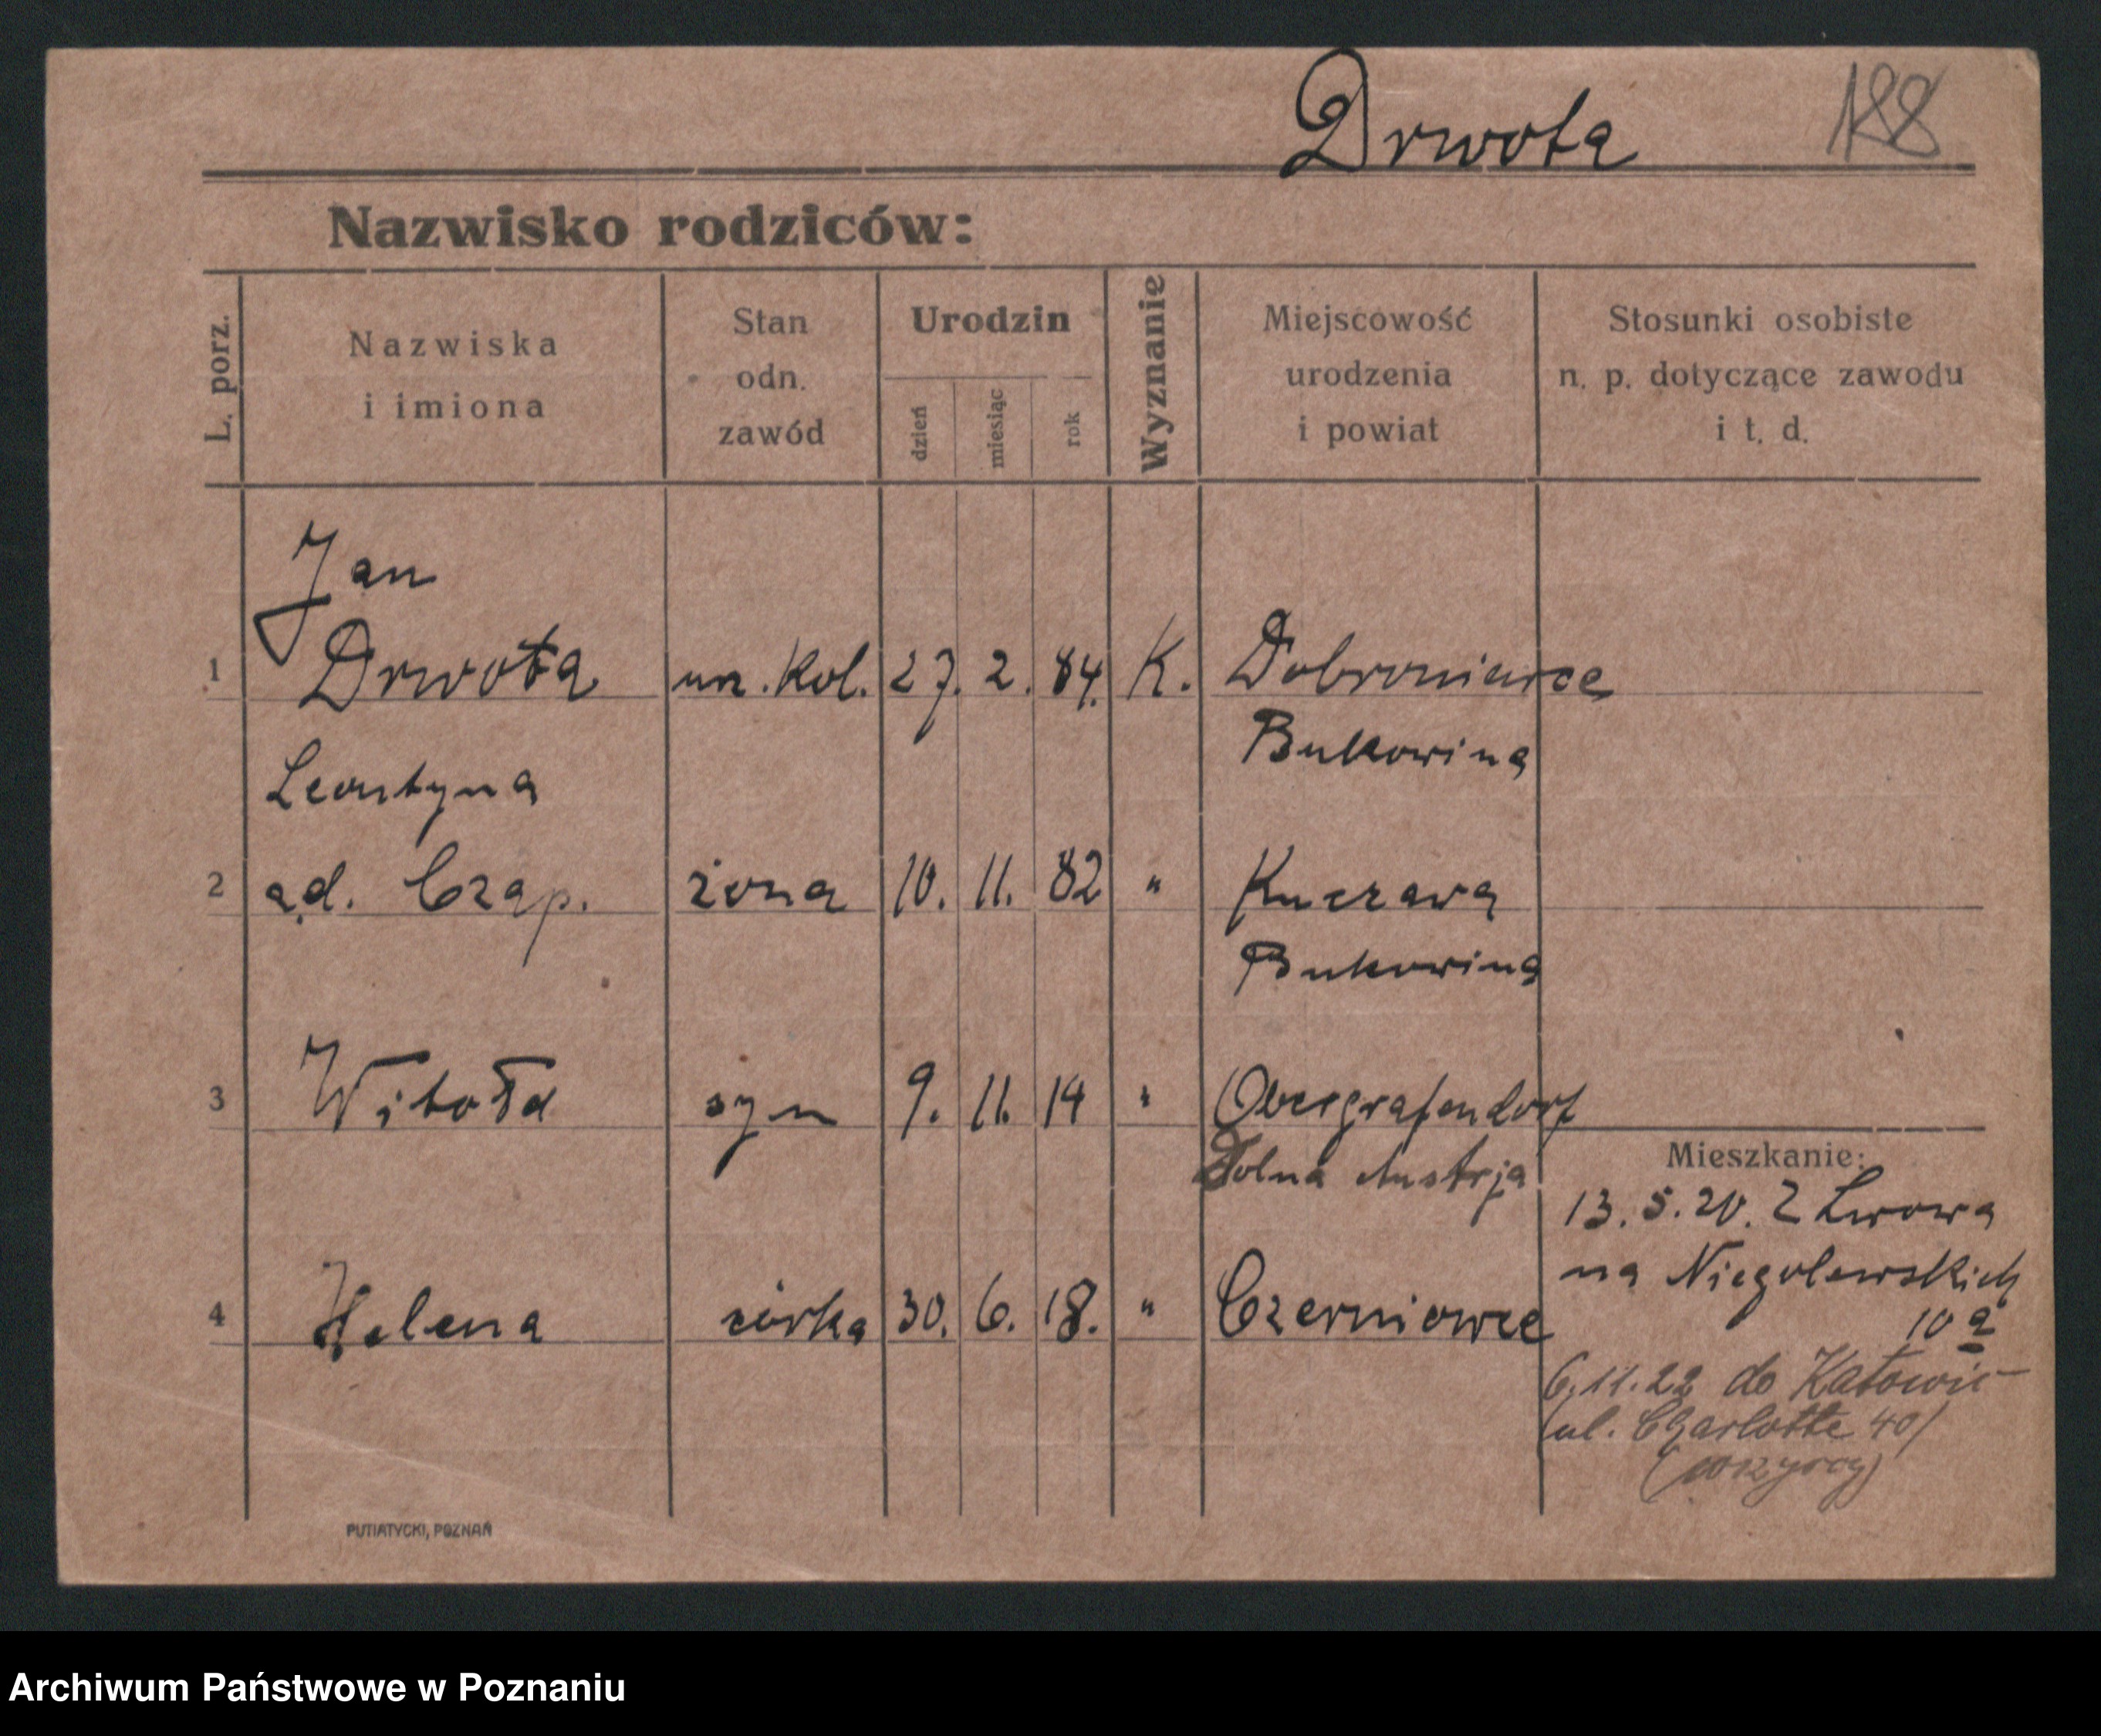 Drwota 188
Nazwisko rodziców:
L. porz.
Nazwiska
i imiona
Stan
odn.
zawód
Urodzin
dzień
miesiąc
rok
Wyznanie
Miejscowość
urodzenia
i powiat
Stosunki osobiste
n. p. dotyczące zawodu
i t. d.
Jan
1 Drwota urz. Kol. 27. 2. 84. K. Dobroniowce
Bukowina
Leontyna
2 Czap. żona 10. 11. 82 " Kuczawa
Bukowina
3 Witołd syn 9. 11. 14 " Obergrafendorf
Dolna Austrja
4 Helena córka 30. 6. 18. " Czerniowce
Mieszkanie:
13. 5. 20. Z Lwowa
na Niegolewskich
10 a
6.11.22 do Katowic
(ul. Charlotte 40/
(wszyscy)
PUTIATYCKI, POZNAŃ
Archiwum Państwowe w Poznaniu